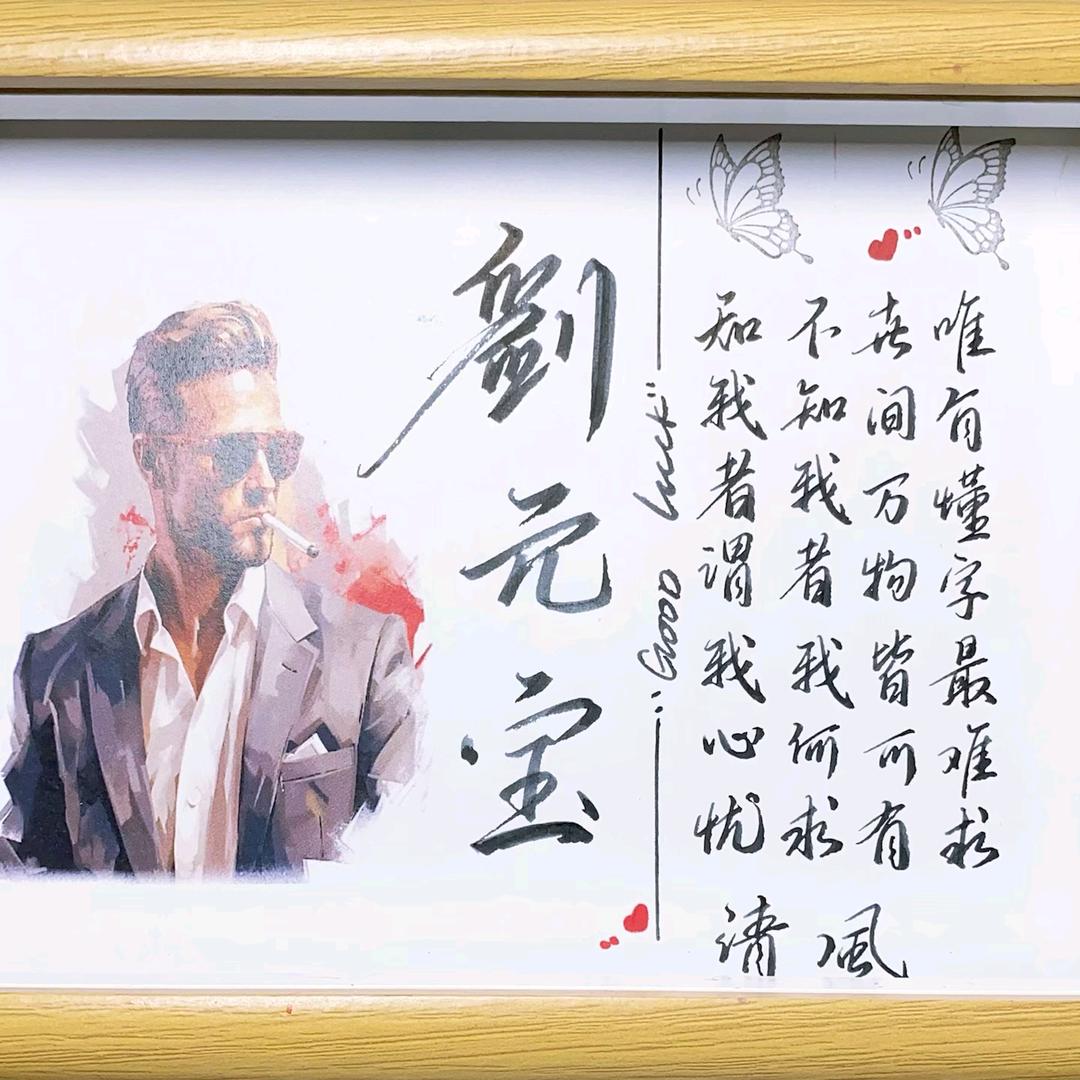 劉元宝
"GOOD luck"
知我者谓我心忧
不知我者我何求
世间万物皆可有
唯有懂字最难求
清風